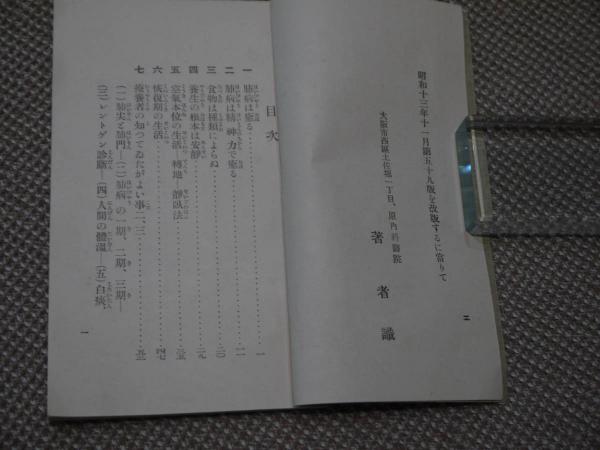 昭和十三年十一月第五十九版を改版するに當りて
大阪市西區土佐堀一丁目、原內科醫院
著者識
二
目次
一 肺病は癒る……………一
二 肺病は精神力で癒る……………一一
三 食物は種類によらぬ……………二〇
四 養生の根本は安靜……………二九
五 空氣本位の生活 轉地 靜臥法……………三五
六 恢復期の生活……………四七
七 療養者の知つてゐたがよい事二、三……………五五
(一)肺尖と肺門―(二)肺病の一期、二期、三期―
(三)レントゲン診斷―(四)人間の體溫―(五)白痰、
一